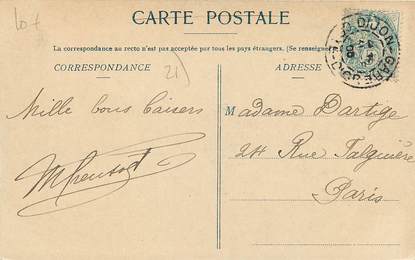 10+
CARTE POSTALE
La correspondance au recto n'est pas acceptée par tous les pays étrangers. (Se renseigner
CORRESPONDANCE
ADRESSE
21
DIJON-GARE
Mille bons baisers
Madame Dartige
24 Rue Falguière
Paris